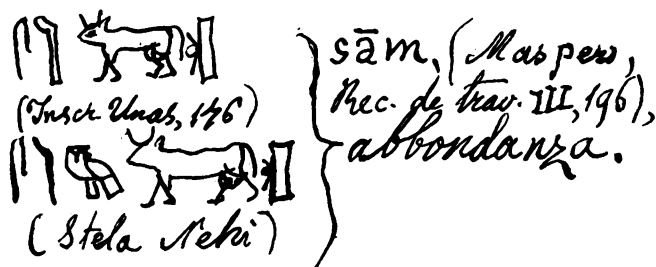 (Inscr. Unas, 146)
(Stela Nehi)
sām, (Maspero,
Rec. de trav. III, 196),
abbondanza.